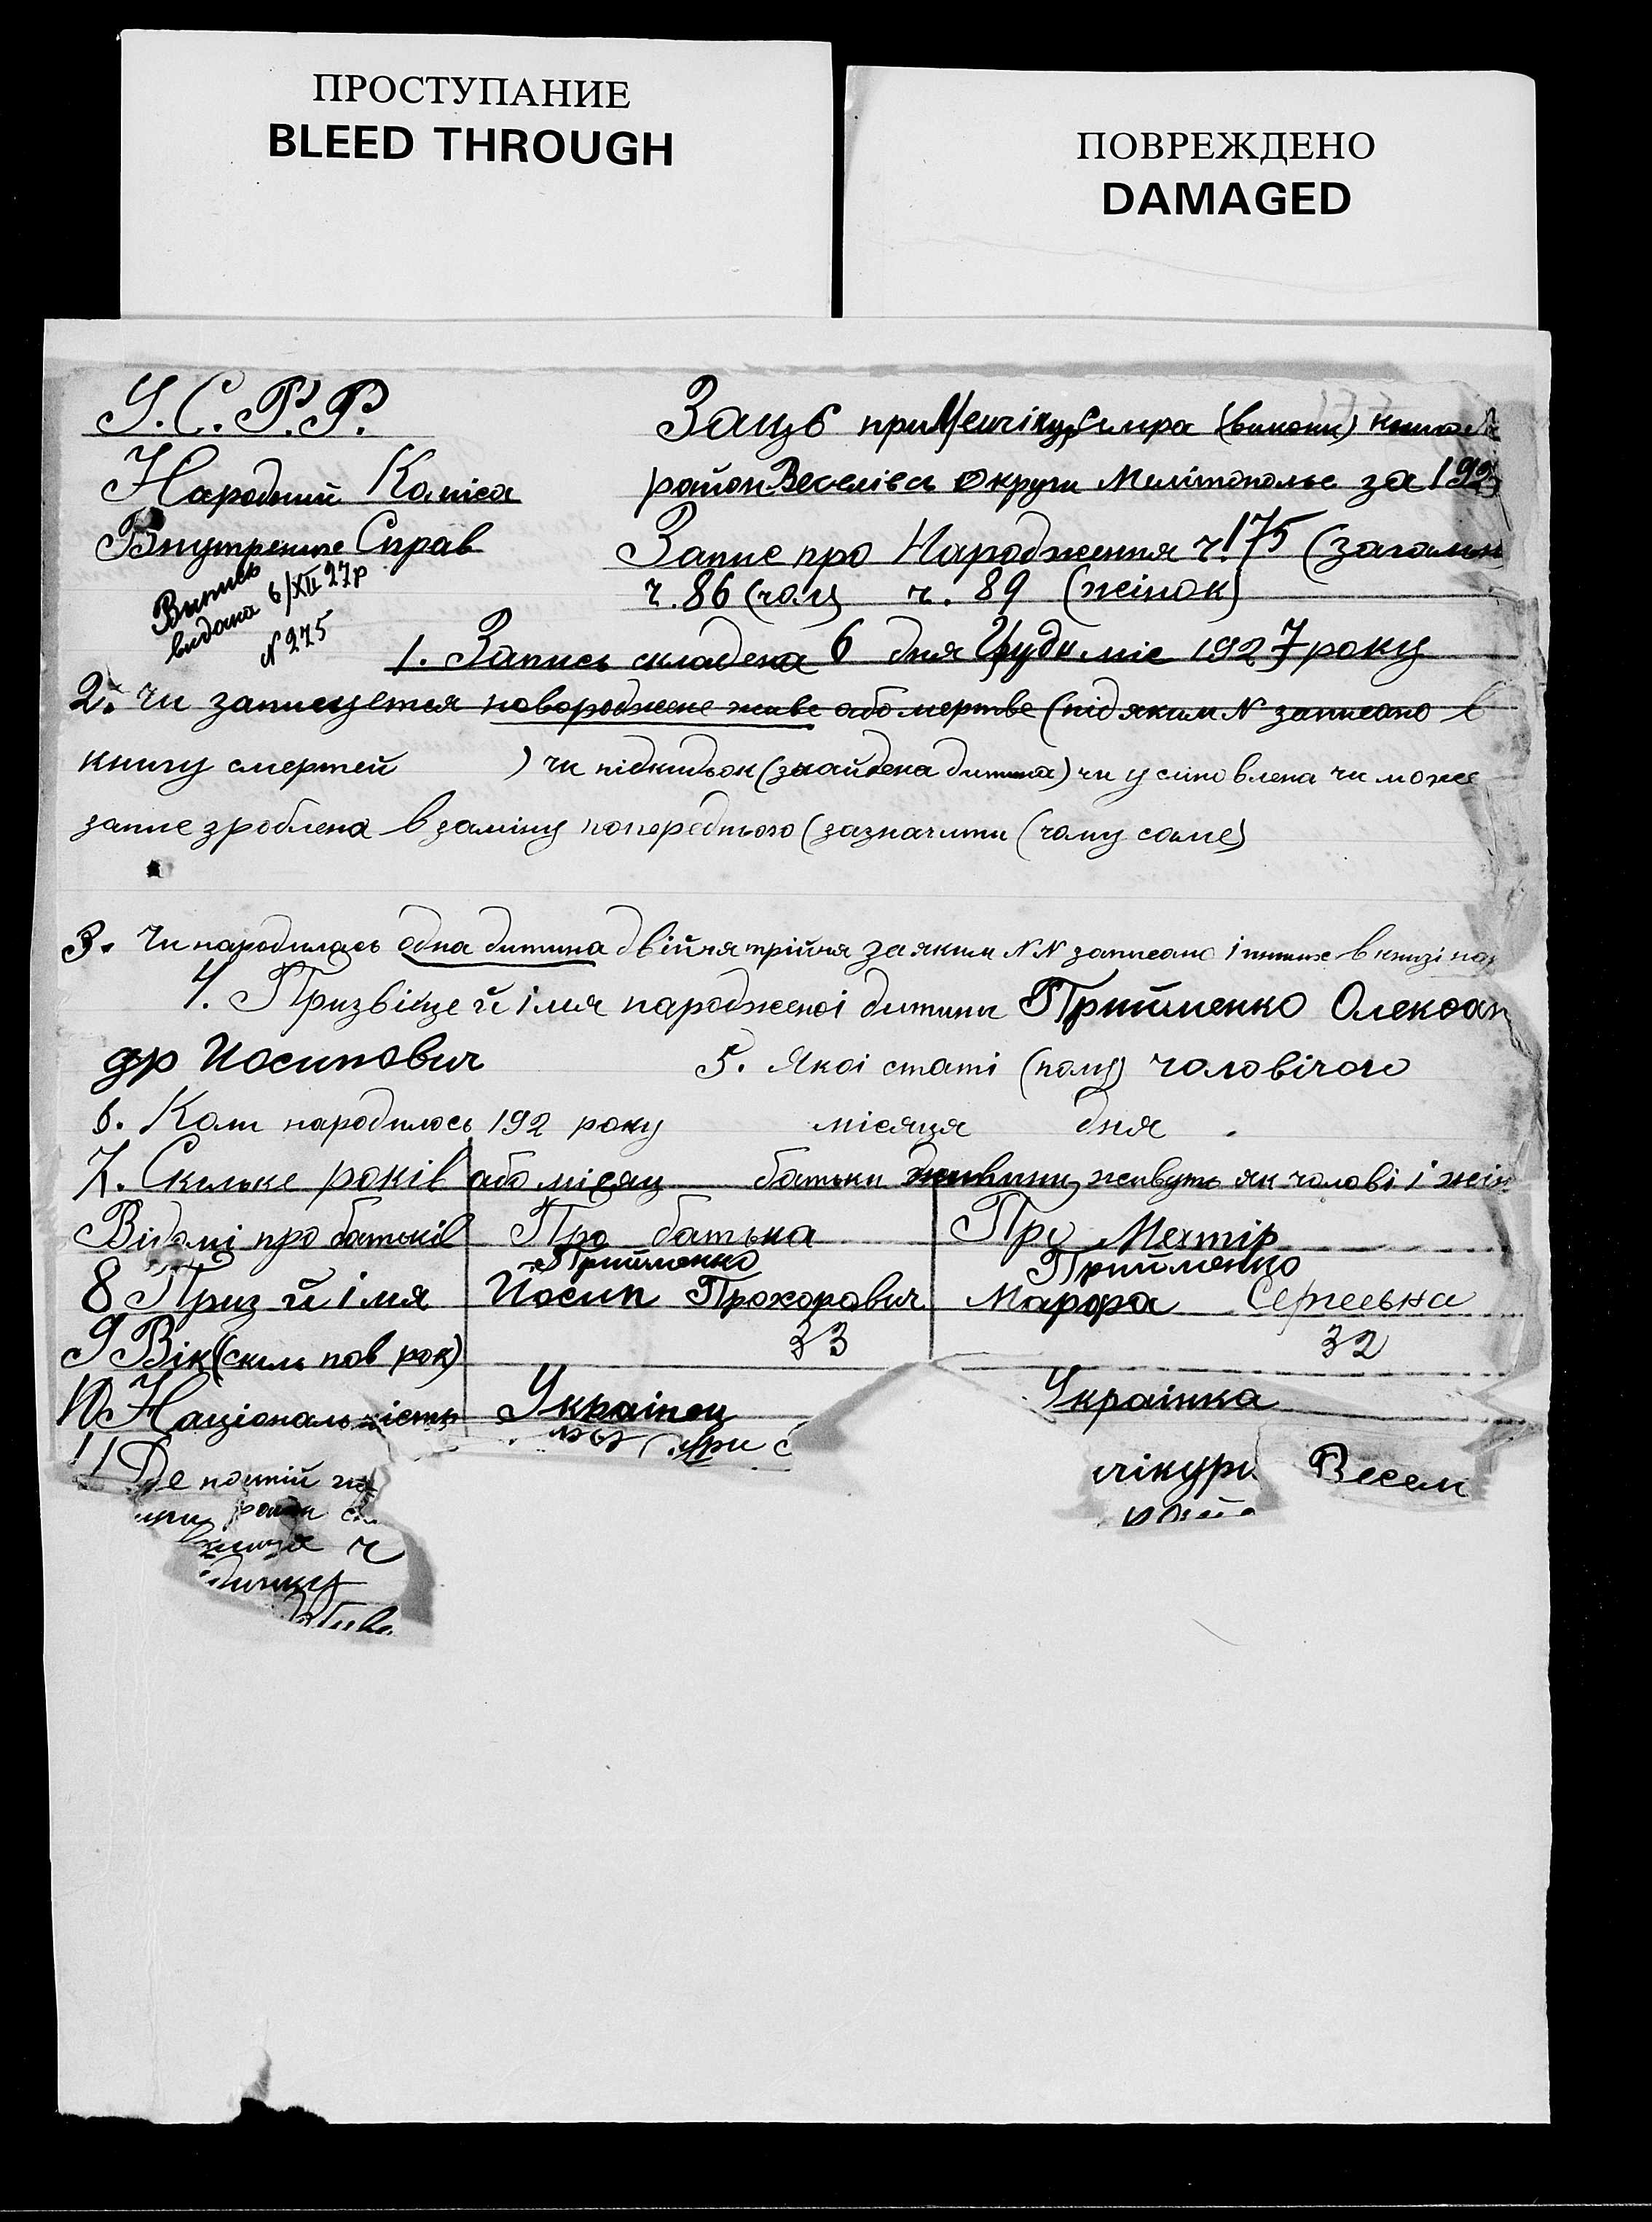 ПРОСТУПАНИЕ
BLEED THROUGH
ПОВРЕЖДЕНО
DAMAGED
У.С.Р.Р.
Народний Коміса
Внутренне Справ
Випись
видана 6/XII 27р
N 275
Загцб при
район Веселівсь округи Мелітопольс за 192
Запис про Народження ч. 175 (загальн
ч. 86 (чол) ч. 89 (жінок)
1. Запись складена 6 дня Грудн міс 1927 року
2. Чи записуется новороджене живе або мертве (під яким N записано в
книгу смертей ) чи підкидьок (знайдена дитина) чи установлена чи може
запис зроблена в заміну попереднього (зазначити (чому саме)
3. Чи народилась одна дитина двійня трійня за яким NN записано інших в книзі на
4. Призвіще й імя народженої дитини Прийменко Олексан
др Иосипович 5. Якоі статі (полу) чоловічого
6. Коли народилось 192 року місяця дня
7. Скильке років або місяц батьки живуть як чолові і жін
Відомі про батьків Про батька Про Матір
Прийменко Прийменко
8 Приз й імя Йосип Прохорович Марфа Сергеевна
9 Вік (скіль пов рок) 33 32
10. Національність Украінец Украінка
11 Де постій
при с
чікури Весел
книза ч